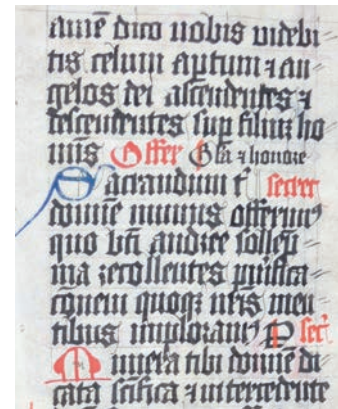 amē dico uobis uidebi
tis celum aptum ⁊ an
gelos dei ascendentes ⁊
descendentes sup filiuꝫ ho
minis Offer Gła ⁊ honore
Sacrandum t̄ secret
domīe munus offerimꝰ
quo bt̄i andree sollep̄
nia recollentes purifica
cōnem quoqꝫ nr̄is men
tibus imploramꝰ P secr̄
Munera tibi domīe di
cata sc̄ifica ⁊ intercedente